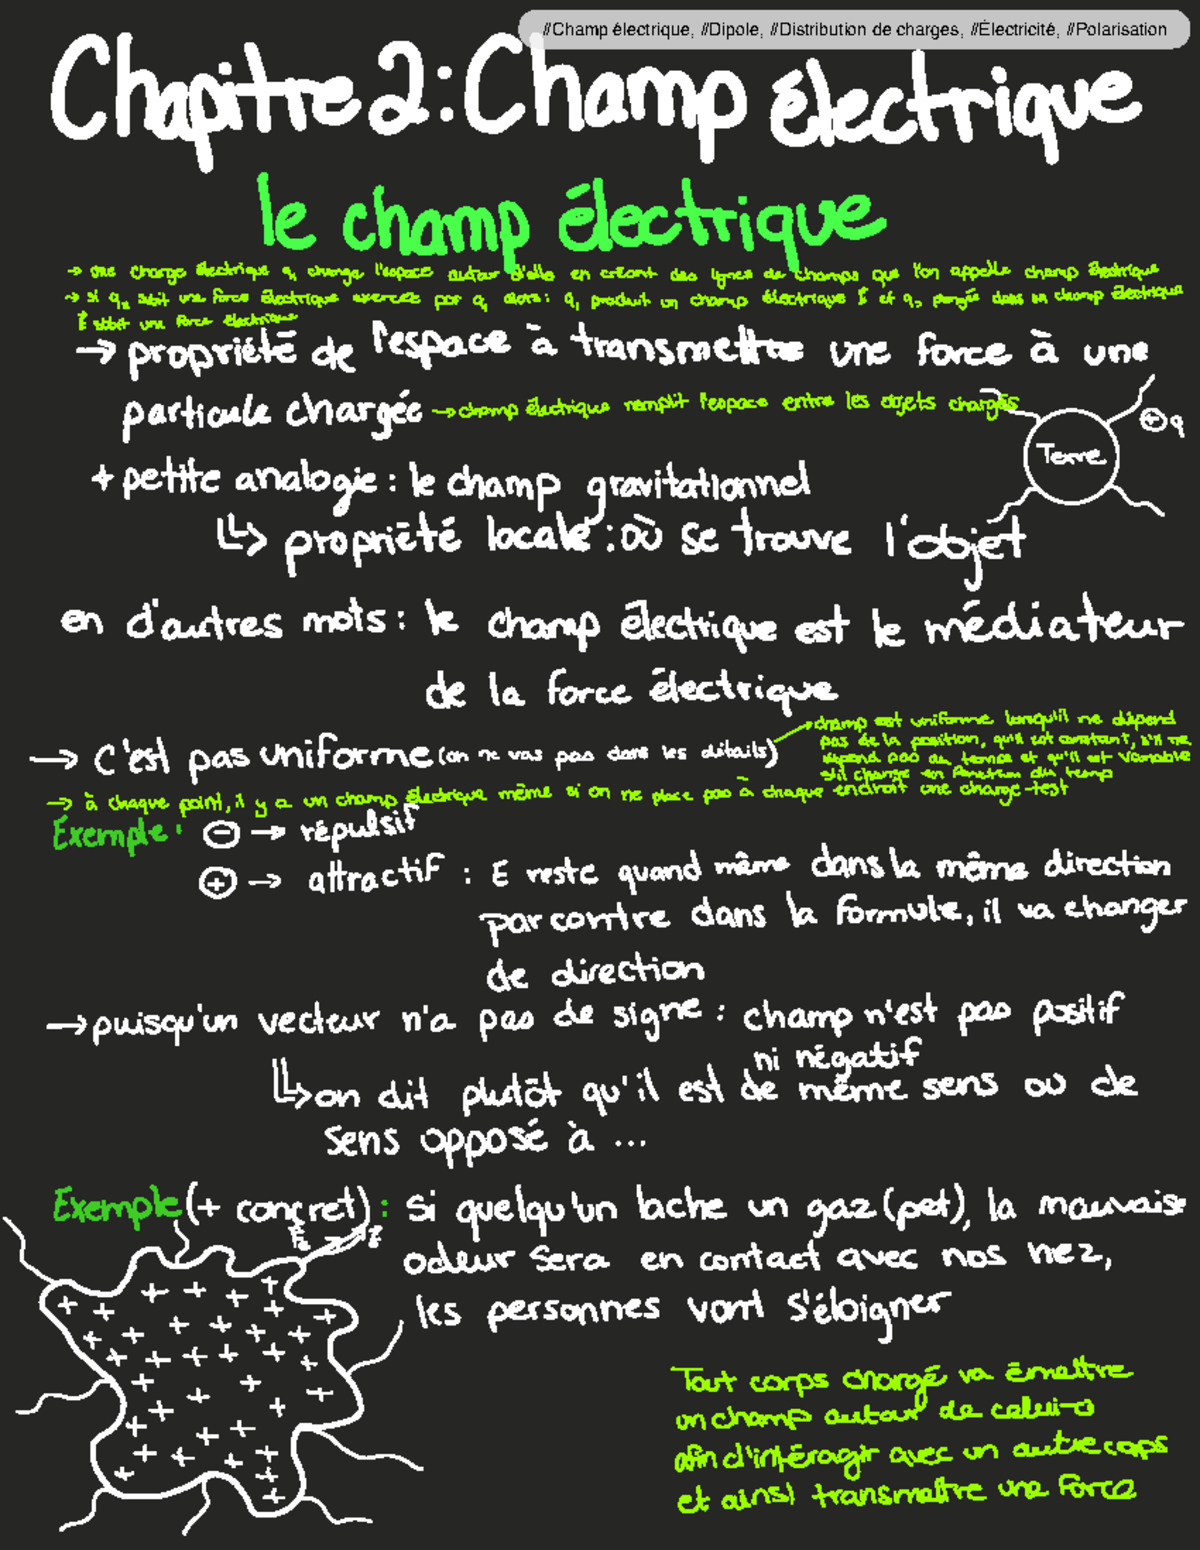 #Champ électrique, #Dipole, #Distribution de charges, #Électricité, #Polarisation
Chapitre 2: Champ électrique
le champ électrique
→ une charge électrique q, change l'espace autour d'elle en créant des lignes de champs que l'on appelle champ électrique
→ si q₂ subit une force électrique exercée par q₁ alors : q₁ produit un champ électrique E et q₂ plongée dans un champ électrique
E subit une force électrique
→ propriété de l'espace à transmettre une force à une
particule chargée → champ électrique remplit l'espace entre les objets chargés
Terre
+ q
+ petite analogie : le champ gravitationnel
↳ propriété locale : où se trouve l'objet
en d'autres mots : le champ électrique est le médiateur
de la force électrique
→ champ est uniforme lorsqu'il ne dépend
pas de la position, qu'il est constant, s'il ne
dépend pas du temps et qu'il est variable
s'il change en fonction du temp
→ C'est pas uniforme (on ne vas pas dans les détails)
→ à chaque point, il y a un champ électrique même si on ne place pas à chaque endroit une charge-test
Exemple : ⊖ → répulsif
⊕ → attractif : E reste quand même dans la même direction
par contre dans la formule, il va changer
de direction
→ puisqu'un vecteur n'a pas de signe : champ n'est pas positif
ni négatif
↳ on dit plutôt qu'il est de même sens ou de
sens opposé à ...
Exemple (+ concret) : si quelqu'un lache un gaz (pet), la mauvaise
odeur sera en contact avec nos nez,
les personnes vont s'éloigner
+ + + + + + + + + + + + + + + + + + + + + + + + + + + + + + + + + + +
Tout corps chargé va émettre
un champ autour de celui-ci
afin d'intéragir avec un autre corps
et ainsi transmettre une force